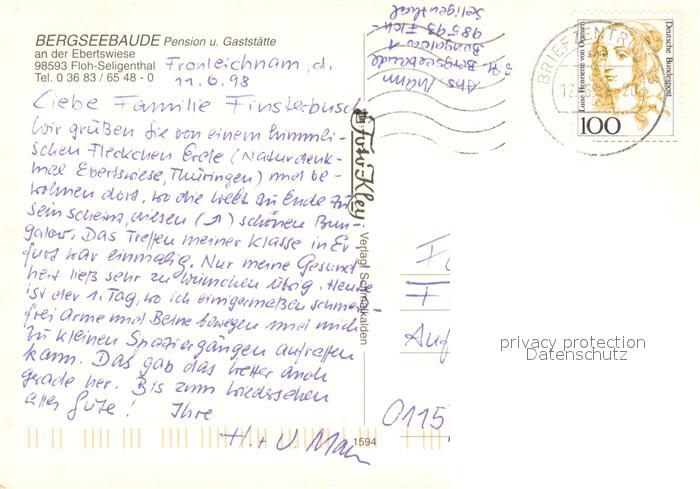 BERGSEEBAUDE Pension u. Gaststätte
an der Ebertswiese
98593 Floh-Seligenthal
Tel. 0 36 83 / 65 48 - 0
Fronleichnam, d.
11.6.98
Liebe Familie Finsterbusch
wir grüßen Sie von einem himmli-
schen Fleckchen Erde (Naturdenk-
mal Ebertswiese, Thüringen) und be-
wohnen dort, wo die Welt zu Ende zu
sein scheint, diesen (↗) schönen Bun-
galow. Das Treffen meiner Klasse in Er-
furt war einmalig. Nur meine Gesund-
heit ließ sehr zu wünschen übrig. Heute
ist der 1. Tag, wo ich einigermaßen schmerz-
frei Arme und Beine bewegen und mich
zu kleinen Spaziergängen aufraffen
kann. Das gab das Wetter auch
gerade her. Bis zum Wiedersehen
alles Gute! Ihre
H. + U. Mann
Abs. Mann
z. Zt. Bergseebaude
Bungalow 1
98593 Floh-
Seligenthal
Foto Kley
Verlag Schmalkalden
1594
BRIEFZENTR
Deutsche Bundespost
Luise Henriette von Oranien
100
F
F
Auf
0115
privacy protection
Datenschutz